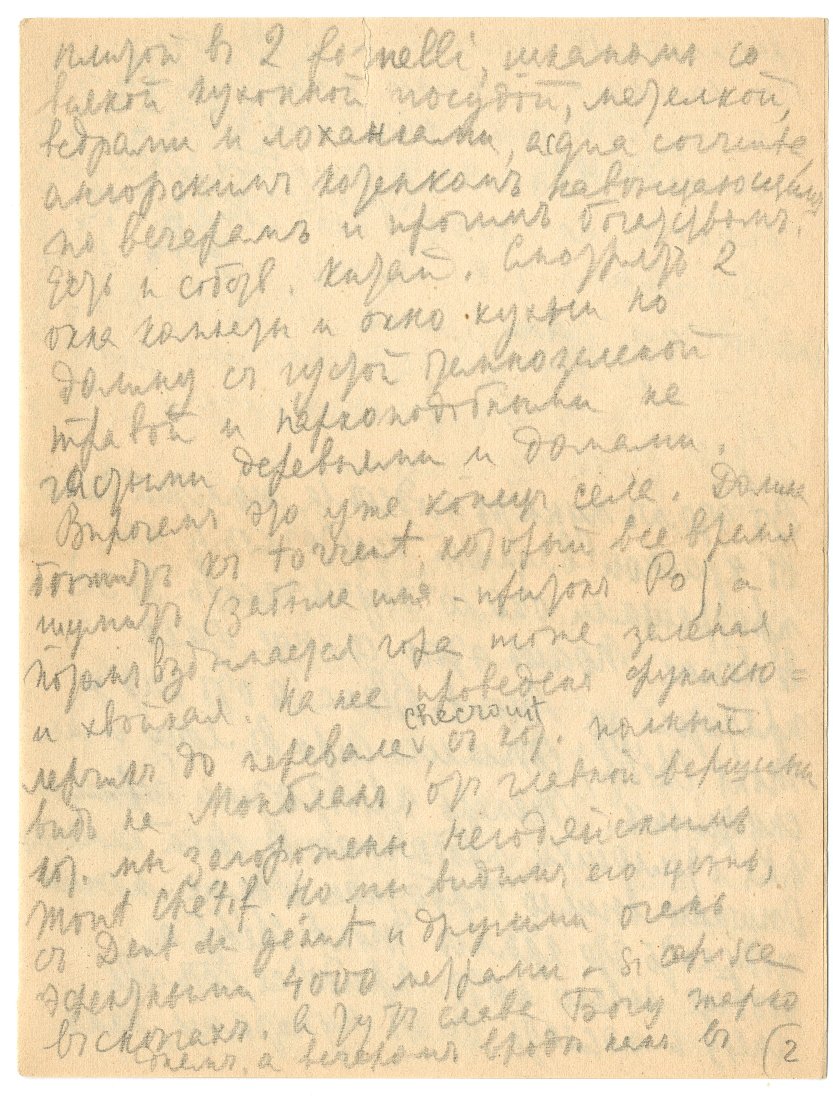 плитой въ 2 fornelli, шкапомъ со
всякой кухонной посудой, метелкой,
ведрами и лоханками, acqua corrente,
ангорскимъ котенкомъ навещающимъ
по вечерамъ и прочимъ богатствомъ.
Есть и собств. китай. Смотрятъ 2
окна камеры и окно кухни по
долину съ густой темнозеленой
травой и паркоподобными не
частыми деревьями и домами.
Впрочемъ это уже конецъ села. Долина
бежитъ къ torrent, который все время
шумитъ (забыла имя - притокъ Po) а
потомъ вздымается гора тоже зеленая
и хвойная. На нее проведенъ фуникю=
лерчикъ до перевала checrouit, съ кот. полный
видъ на Монбланъ, отъ главной вершины
кот. мы загорожены негодяйскимъ
Mont Chétif. Но мы видимъ его цепь,
съ Dent du géant и другими очень
эфектными 4000 метрами - si capisce
въ снегахъ. А тутъ слава Богу жарко
днемъ, а вечеромъ вроде какъ въ
(2